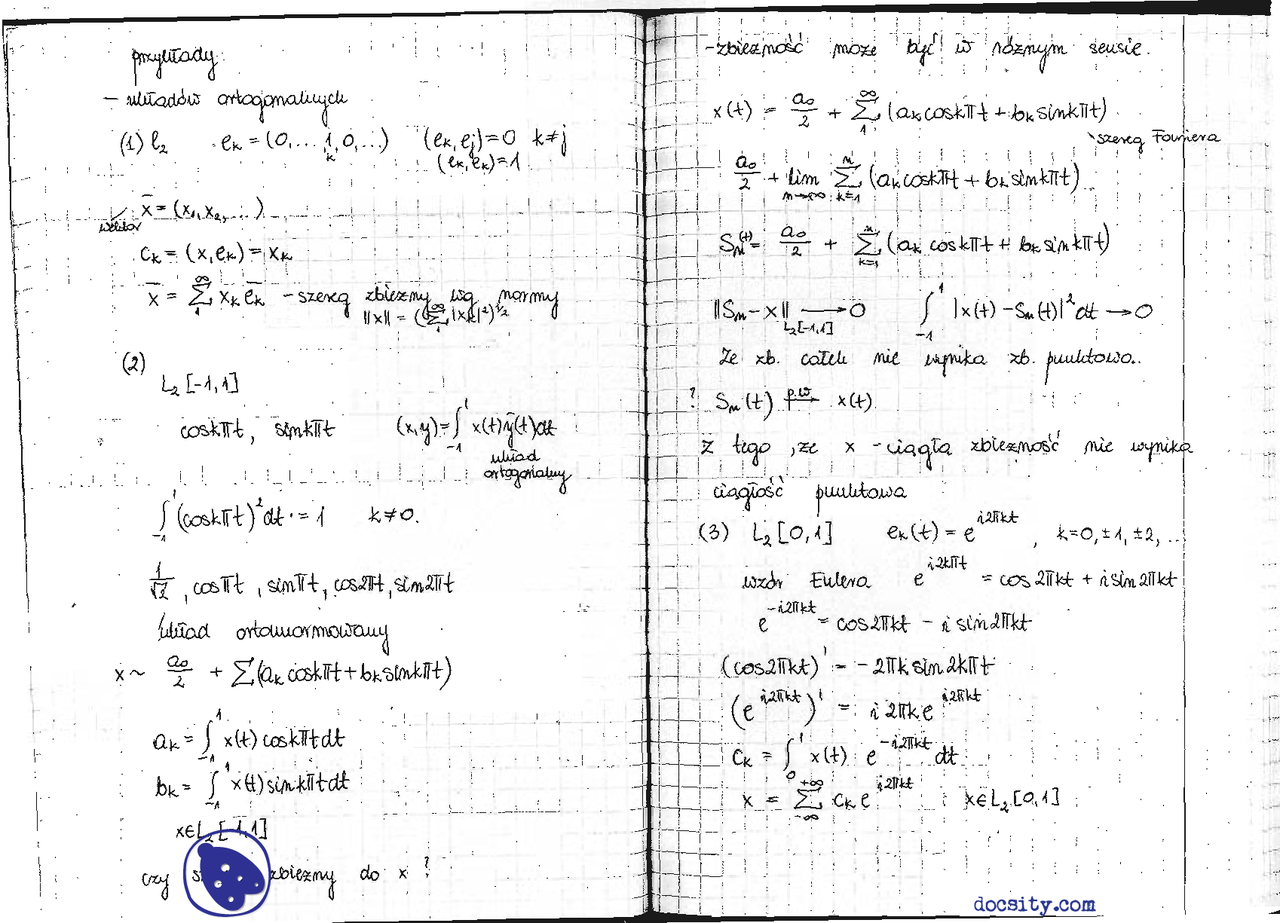 przykłady:
– układów ortogonalnych
(1) l₂ e_k = (0,... 1, 0,...) (e_k, e_j) = 0 k≠j
k (e_k, e_k) = 1
x̄ = (x₁, x₂, ...)
wektor
c_k = (x, e_k) = x_k
x̄ = ∑₁^∞ x_k ē_k – szereg zbieżny wg normy
||x|| = (∑₁^∞ |x_k|²)^½
(2)
L₂ [-1,1]
cos kπt, sin kπt (x,y) = ∫₋₁¹ x(t) ȳ(t) dt
układ
ortogonalny
∫₋₁¹ (cos kπt)² dt = 1 k≠0.
1/√2, cos πt, sin πt, cos 2πt, sin 2πt
układ ortonormowany
x ~ a₀/2 + ∑(a_k cos kπt + b_k sin kπt)
a_k = ∫₋₁¹ x(t) cos kπt dt
b_k = ∫₋₁¹ x(t) sin kπt dt
x∈L₂ [-1,1]
czy zbieżny do x ?
-zbieżność może być w różnym sensie.
x(t) = a₀/2 + ∑₁^∞ (a_k cos kπt + b_k sin kπt)
szereg Fouriera
a₀/2 + lim_{n→∞} ∑_{k=1}^n (a_k cos kπt + b_k sin kπt)
S_n(t) = a₀/2 + ∑_{k=1}^n (a_k cos kπt + b_k sin kπt)
||S_n – x||_{L₂[-1,1]} → 0 ∫₋₁¹ |x(t) – S_n(t)|² dt → 0
Ze zb. całek nie wynika zb. punktowo..
? S_n(t) p.w→ x(t)
Z tego, że x – ciągła zbieżność nie wynika
ciągłość punktowa
(3) L₂ [0,1] e_k(t) = e^{i2πkt}, k=0,±1,±2,...
wzór Eulera e^{i2kπt} = cos 2πkt + i sin 2πkt
e^{-i2πkt} = cos 2πkt – i sin 2πkt
(cos 2πkt)' = -2πk sin 2kπt
(e^{i2πkt})' = i 2πk e^{i2πkt}
c_k = ∫₀¹ x(t) e^{-i2πkt} dt
x = ∑_{-∞}^{+∞} c_k e^{i2πkt} x∈L₂ [0,1]
docsity.com